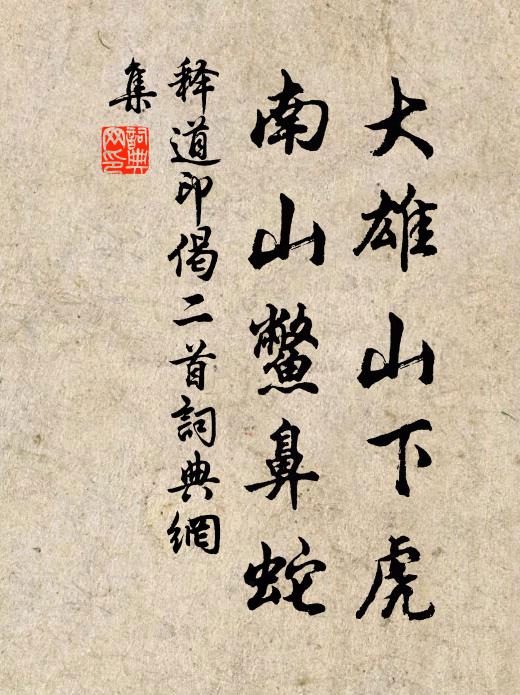 大雄山下虎
南山鱉鼻蛇
释道印偈二首詞典網
集
詞典
网印